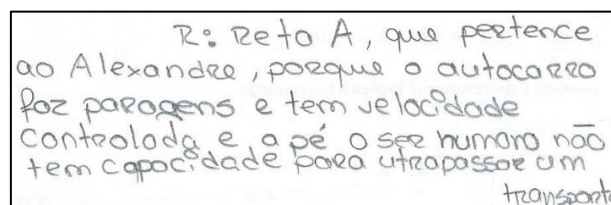 R: Reta A, que pertence
ao Alexandre, porque o autocarro
faz paragens e tem velocidade
controlada e a pé o ser humano não
tem capacidade para utrapassar um
transporte